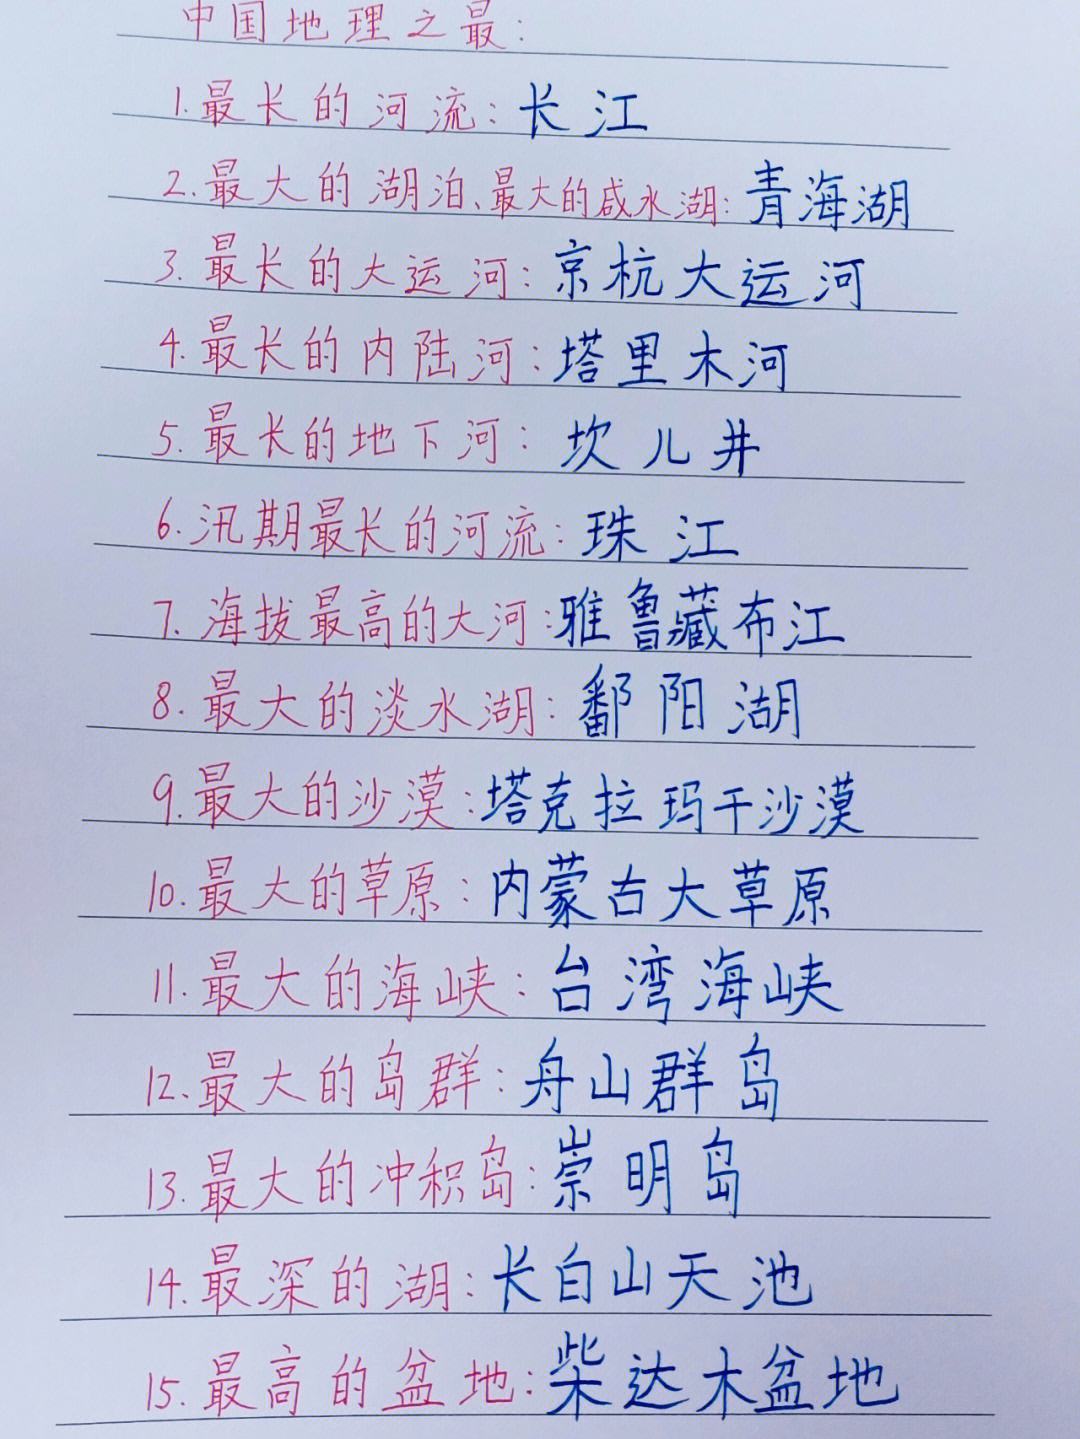 中国地理之最:
1.最长的河流:长江
2.最大的湖泊、最大的咸水湖:青海湖
3.最长的大运河:京杭大运河
4.最长的内陆河:塔里木河
5.最长的地下河:坎儿井
6.汛期最长的河流:珠江
7.海拔最高的大河:雅鲁藏布江
8.最大的淡水湖:鄱阳湖
9.最大的沙漠:塔克拉玛干沙漠
10.最大的草原:内蒙古大草原
11.最大的海峡:台湾海峡
12.最大的岛群:舟山群岛
13.最大的冲积岛:崇明岛
14.最深的湖:长白山天池
15.最高的盆地:柴达木盆地